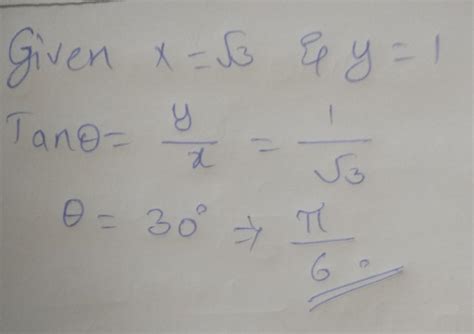 Given x = √3 & y = 1
Tanθ = y/x = 1/√3
θ = 30° ⇒ π/6.